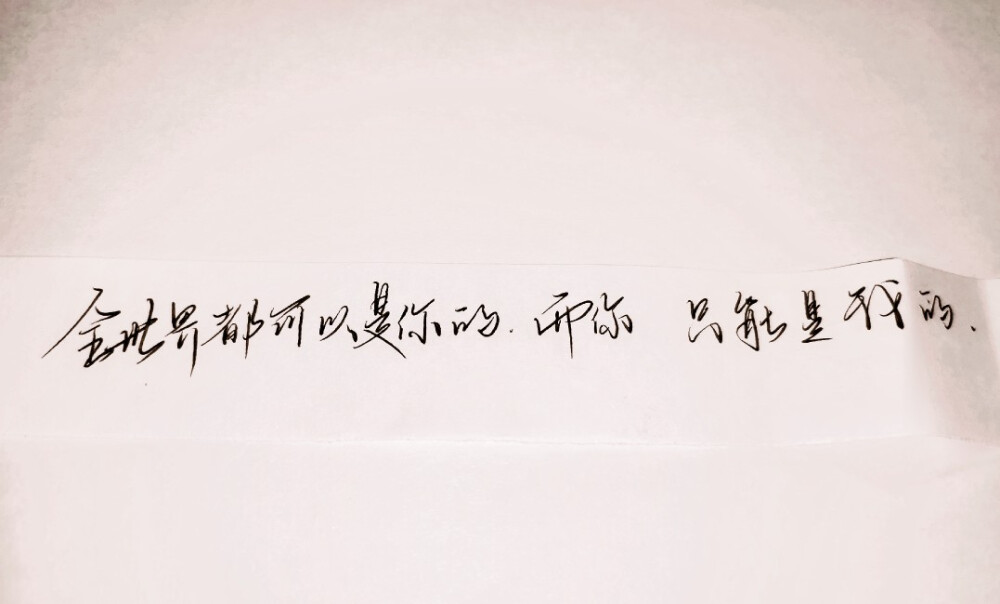 全世界都可以是你的.而你 只能是我的、